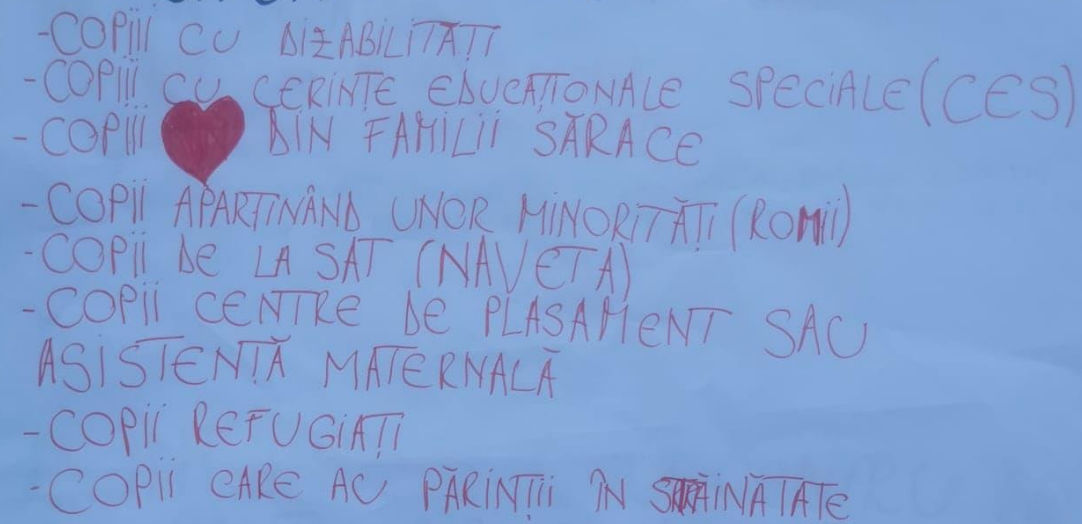 -COPIII CU DIZABILITĂȚI
-COPIII CU CERINȚE EDUCAȚIONALE SPECIALE (CES)
-COPIII DIN FAMILII SĂRACE
-COPII APARȚINÂND UNOR MINORITĂȚI (ROMII)
-COPII DE LA SAT (NAVETA)
-COPII CENTRE DE PLASAMENT SAU
ASISTENȚĂ MATERNALĂ
-COPII REFUGIAȚI
-COPII CARE AU PĂRINȚII ÎN STRĂINĂTATE